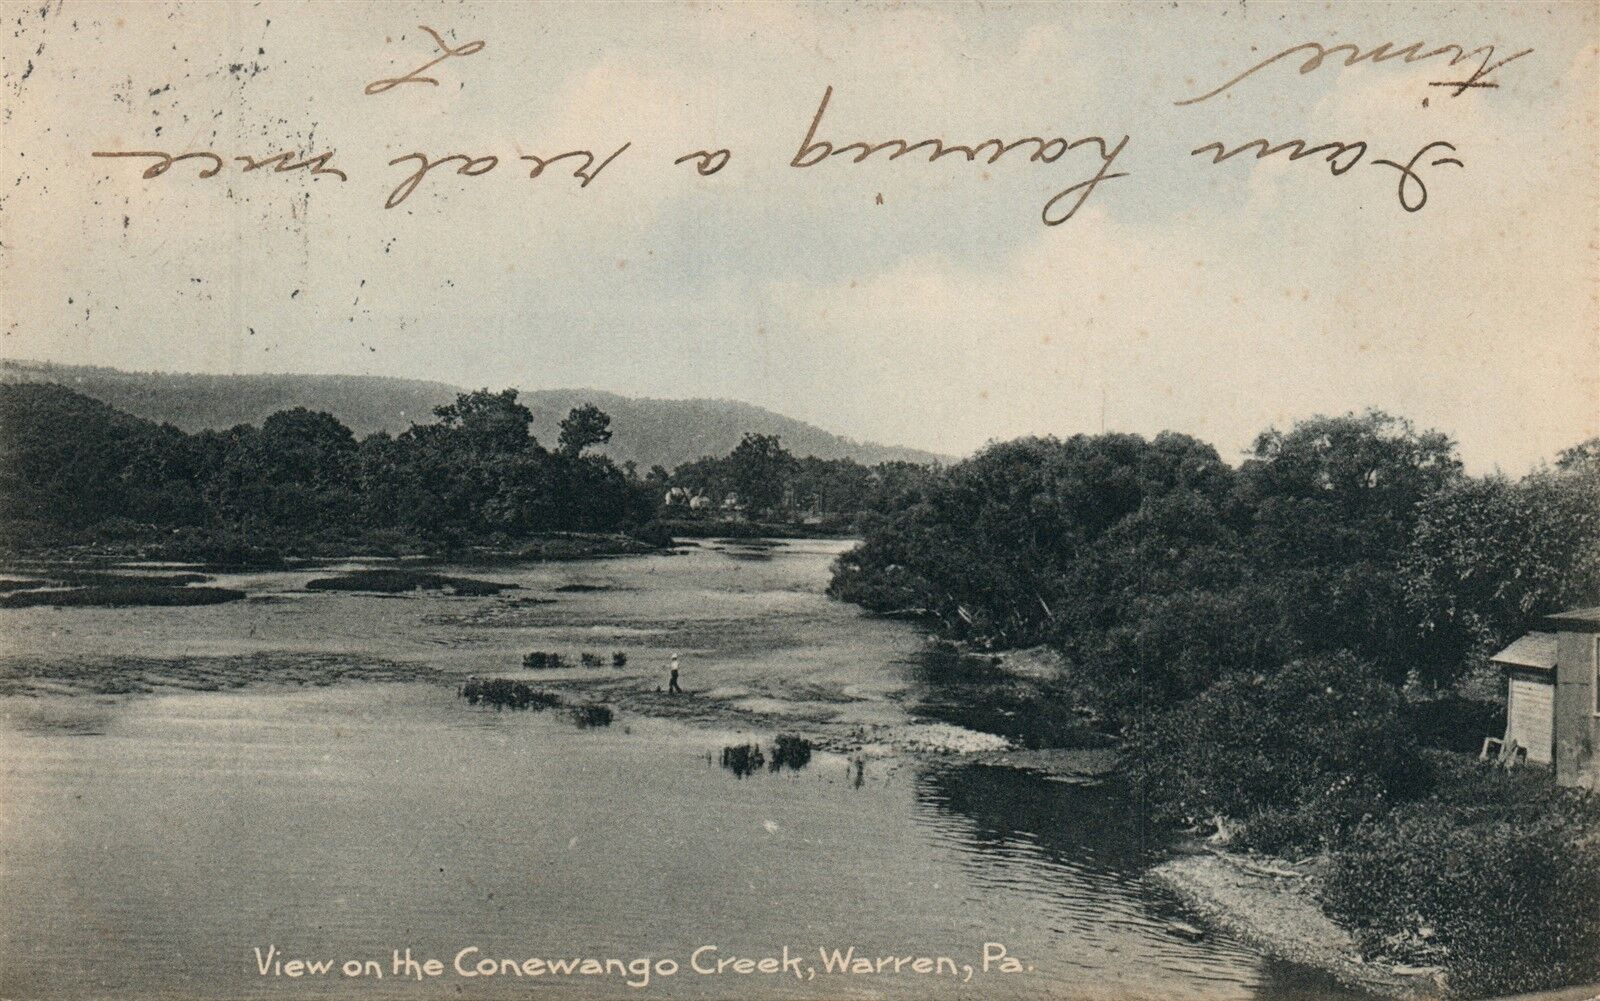 I am having a real nice
time
L
View on the Conewango Creek, Warren, Pa.